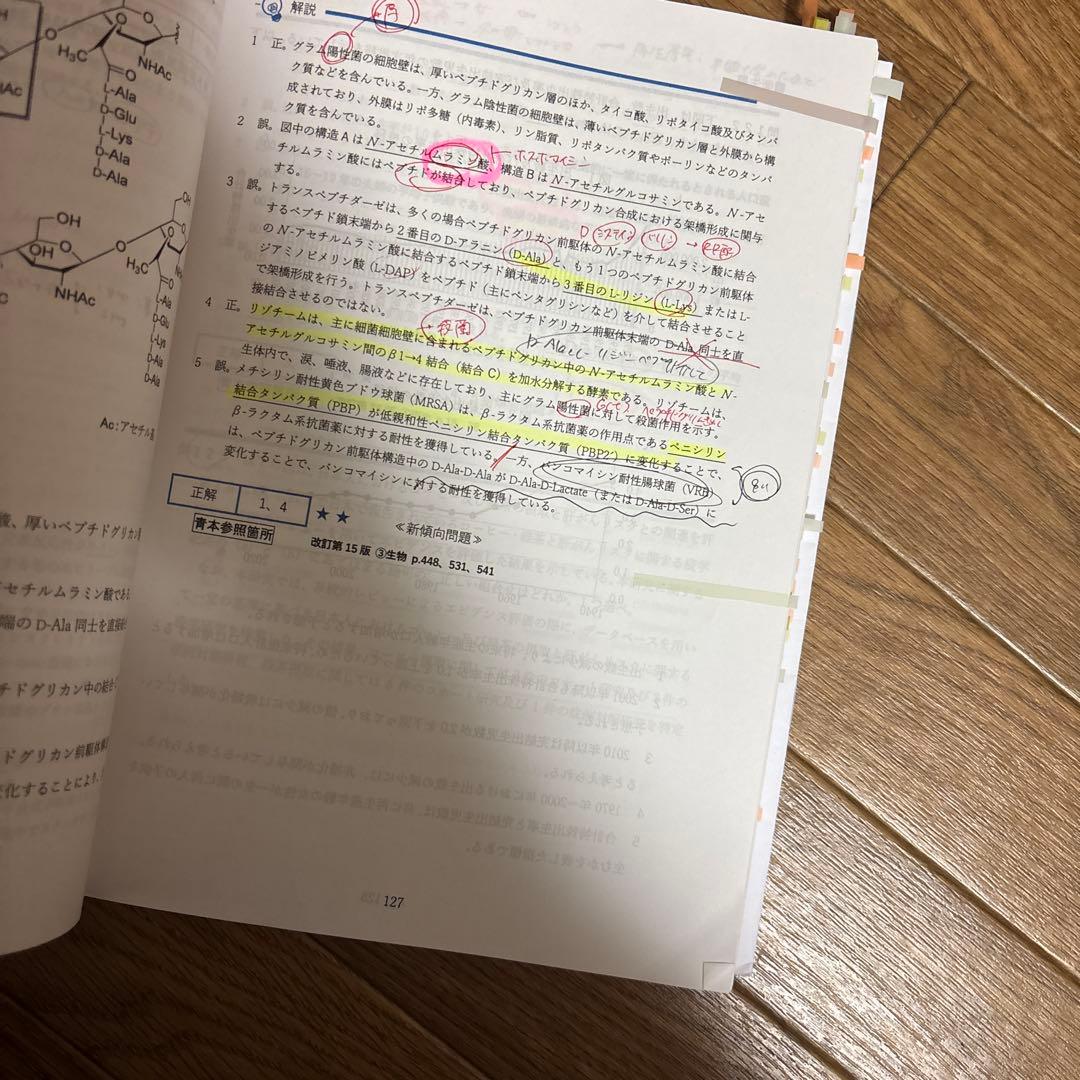 解説
1 正。グラム陽性菌の細胞壁は、厚いペプチドグリカン層のほか、タイコ酸、リポタイコ酸及びタンパ
ク質などを含んでいる。一方、グラム陰性菌の細胞壁は、薄いペプチドグリカン層と外膜から構
成されており、外膜はリポ多糖（内毒素）、リン脂質、リポタンパク質やポーリンなどのタンパ
ク質を含んでいる。
2 誤。図中の構造AはN-アセチルムラミン酸、構造BはN-アセチルグルコサミンである。N-アセ
ホスホマイシン
チルムラミン酸にはペプチドが結合しており、ペプチドグリカン合成における架橋形成に関与
する。
3 誤。トランスペプチダーゼは、多くの場合ペプチドグリカン前駆体のN-アセチルムラミン酸に結合
するペプチド鎖末端から2番目のD-アラニン（D-Ala）と、もう1つのペプチドグリカン前駆体
のN-アセチルムラミン酸に結合するペプチド鎖末端から3番目のL-リジン（L-Lys）またはL-
ジアミノピメリン酸（L-DAP）をペプチド（主にペンタグリシンなど）を介して結合させること
で架橋形成を行う。トランスペプチダーゼは、ペプチドグリカン前駆体末端のD-Ala同士を直
接結合させるのではない。
4 正。リゾチームは、主に細菌細胞壁に含まれるペプチドグリカン中のN-アセチルムラミン酸とN-
アセチルグルコサミン間のβ1→4結合（結合C）を加水分解する酵素である。リゾチームは、
生体内で、涙、唾液、腸液などに存在しており、主にグラム陽性菌に対して殺菌作用を示す。
5 誤。メチシリン耐性黄色ブドウ球菌（MRSA）は、β-ラクタム系抗菌薬の作用点であるペニシリン
結合タンパク質（PBP）が低親和性ペニシリン結合タンパク質（PBP2'）に変化することで、
β-ラクタム系抗菌薬に対する耐性を獲得している。一方、バンコマイシン耐性腸球菌（VRE）
は、ペプチドグリカン前駆体構造中のD-Ala-D-AlaがD-Ala-D-Lactate（またはD-Ala-D-Ser）に
変化することで、バンコマイシンに対する耐性を獲得している。
正解 1、4 ★★
≪新傾向問題≫
青本参照箇所 改訂第15版 ③生物 p.448、531、541
127
H₃C
O
NHAc
L-Ala
D-Glu
L-Lys
D-Ala
D-Ala
OH
OH
HO
O
NHAc
H₃C
NHAc
L-Ala
D-Glu
L-Lys
D-Ala
D-Ala
Ac：アセチル基
酸、厚いペプチドグリカン
アセチルムラミン酸である
端のD-Ala同士を直接結
チドグリカン中の結合
ドグリカン前駆体構
変化することにより、